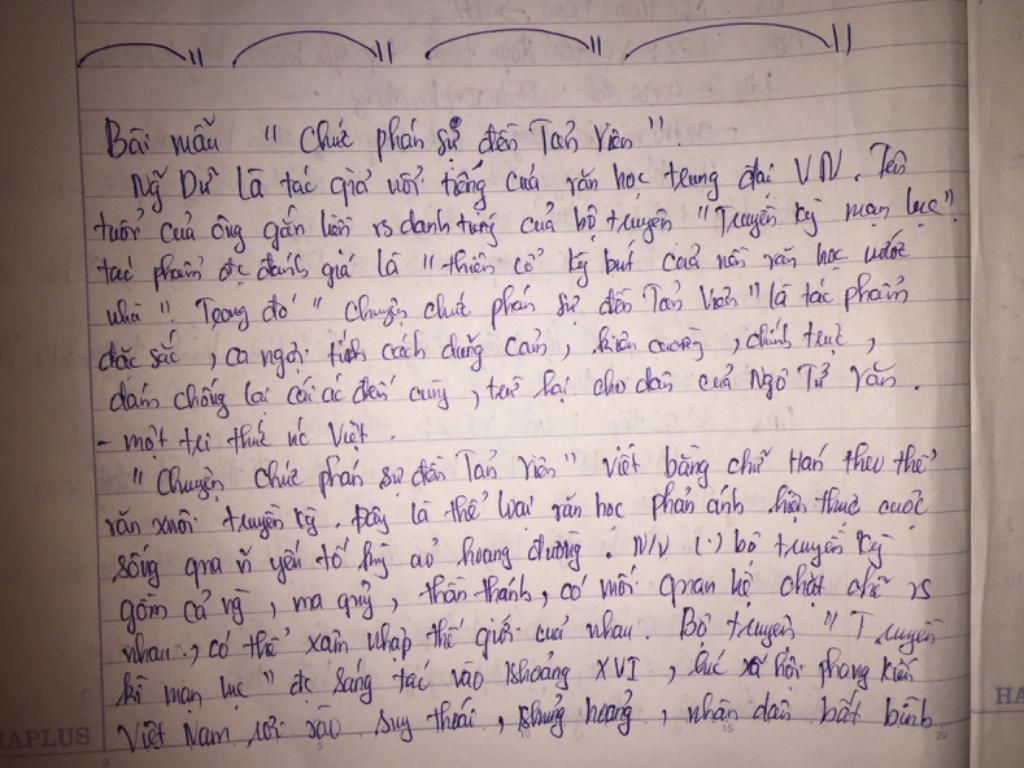 Bài mẫu " Chức phán sự đền Tản Viên ".
Ng~ Dữ là tác giả nổi tiếng của văn học trung đại VN. Tên
tuổi của ông gắn liền vs danh tiếng của bộ truyện "Truyền kỳ mạn lục".
tác phẩm đc đánh giá là " thiên cổ kỳ bút của nền văn học nước
nhà ". Trong đó " Chuyện chức phán sự đền Tản Viên " là tác phẩm
đặc sắc, ca ngợi tính cách dũng cảm, kiên cường, chính trực,
dám chống lại cái ác đến cùng, trừ hại cho dân của Ngô Tử Văn.
- một tri thức nc Việt.
" Chuyện chức phán sự đền Tản Viên " viết bằng chữ Hán theo thể
văn xuôi truyền kỳ. Đây là thể loại văn học phản ánh hiện thực cuộc
sống qua n~ yếu tố kỳ ảo hoang đường. N/v (.) bộ truyền kỳ
gồm cả ng, ma quỷ, thần thánh, có mối quan hệ chặt chẽ vs
nhau, có thể xâm nhập thế giới của nhau. Bộ truyện " Truyền
kì mạn lục " đc sáng tác vào khoảng XVI, lúc xã hội phong kiến
Việt Nam rơi vào suy thoái, khủng hoảng, nhân dân bất bình
HAPLUS
HA